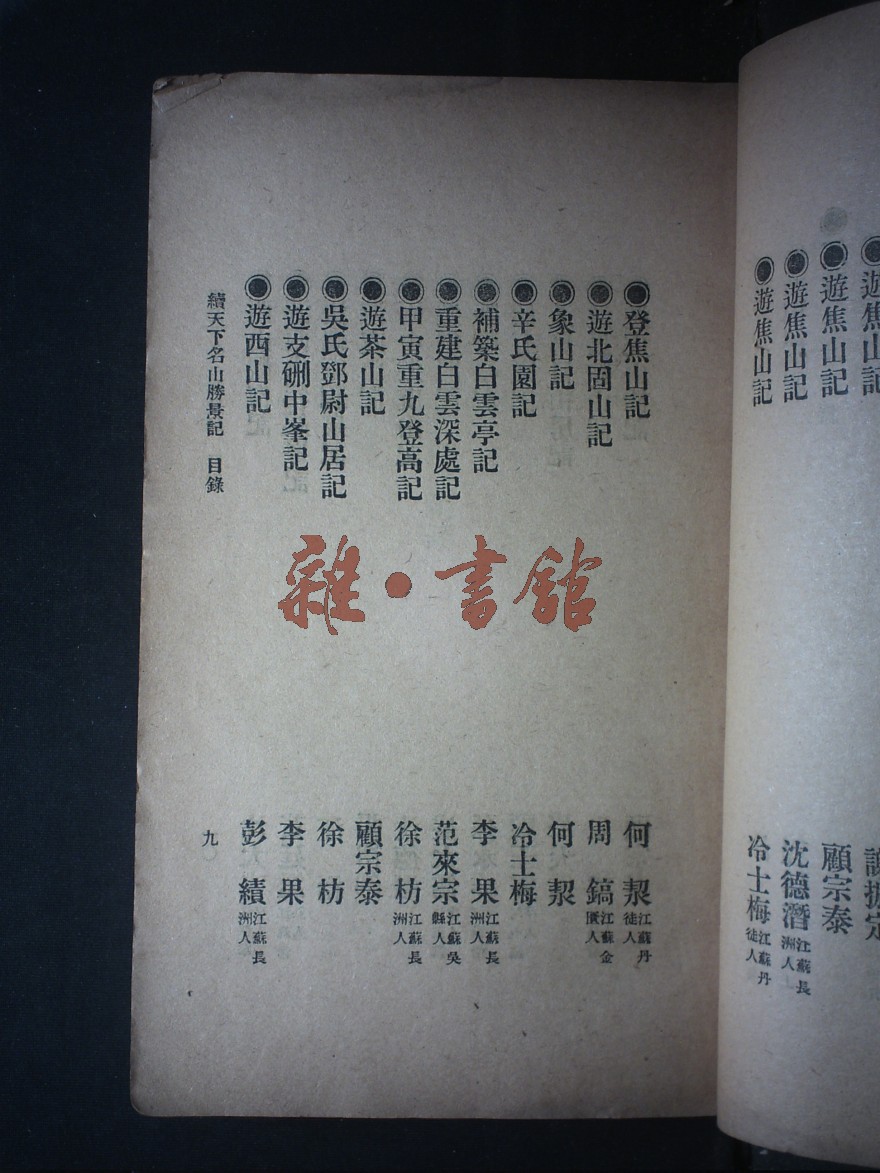 遊焦山記
顧宗泰
遊焦山記
沈德潛 江蘇長洲人
遊焦山記
冷士梅 江蘇丹徒人
登焦山記
何洯 江蘇丹徒人
遊北固山記
周鎬 江蘇金匱人
象山記
何洯
辛氏園記
冷士梅
補築白雲亭記
李果 江蘇長洲人
重建白雲深處記
范來宗 江蘇吳縣人
甲寅重九登高記
徐枋 江蘇長洲人
遊茶山記
顧宗泰
吳氏鄧尉山居記
徐枋
遊支硎中峯記
李果
遊西山記
彭績 江蘇長洲人
續天下名山勝景記 目錄
九
雜·書館